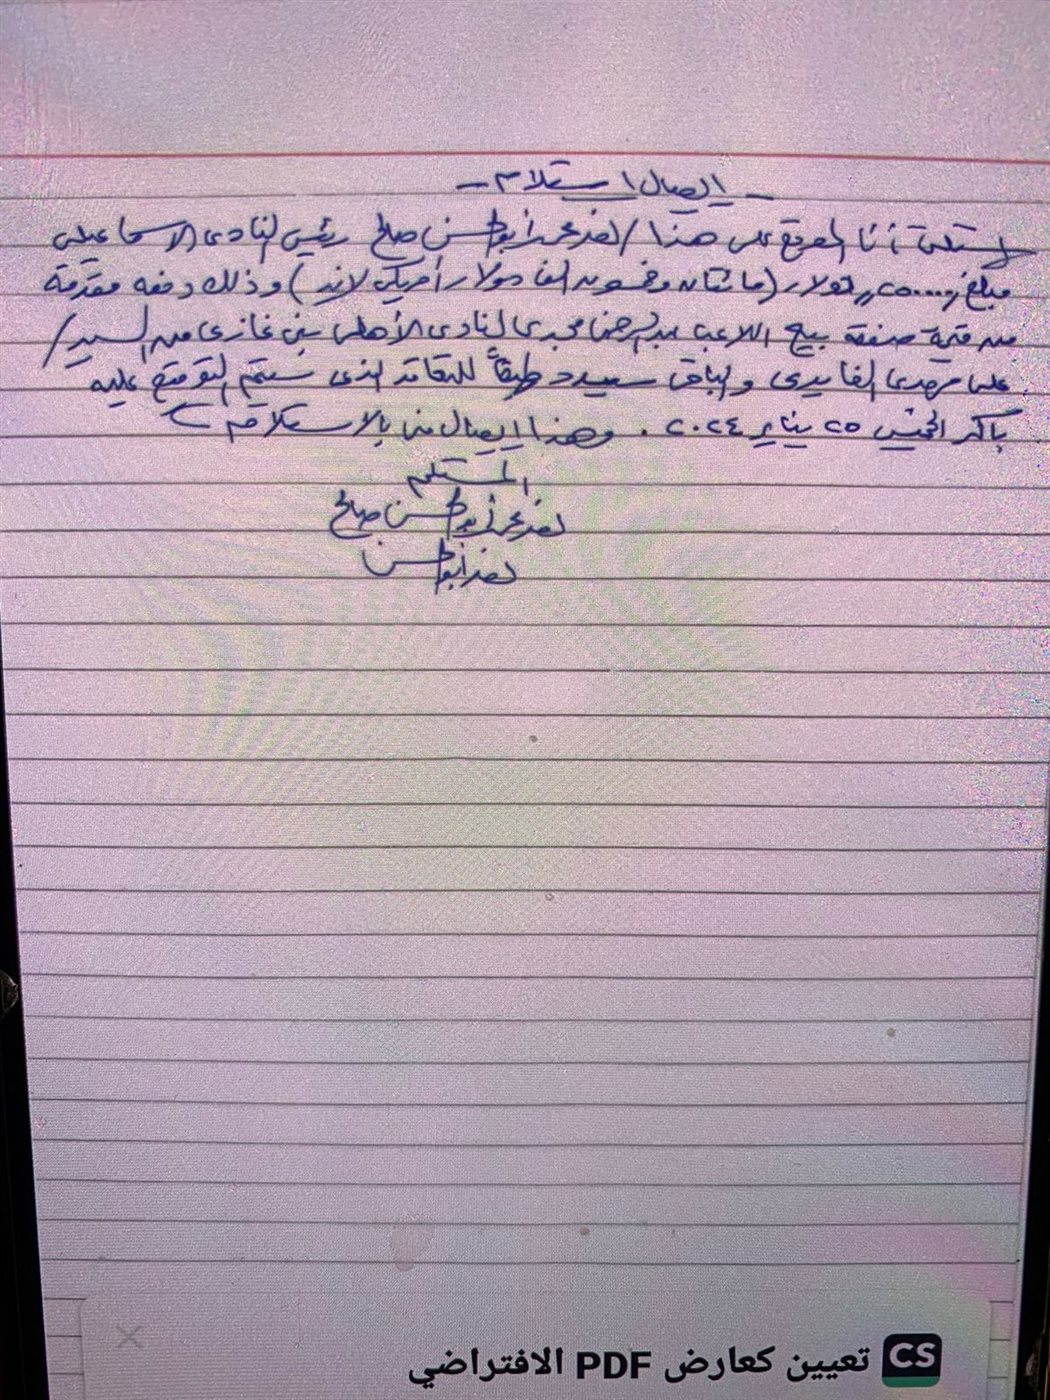 - إيصال استلام -
استلمت أنا الموقع على هذا / نصر محمد أبو الحسن صالح رئيس النادى الاسماعيلى
مبلغ ٢٥٠٠٠٠ دولار (مائتان وخمسون ألفا دولار أمريكى لاغير) وذلك دفعه مقدمة
من قيمة صفقة بيع اللاعب عبدالرحمن مجدى لنادى الأهلى بنى غازى من السيد /
على مهدى الفايدى والباقى سيسدد طبقاً للتعاقد الذى سيتم التوقيع عليه
باكر الخميس ٢٥ يناير ٢٠٢٤ . وهذا إيصال منى بالاستلام
المستلم
نصر محمد أبو الحسن صالح
نصر أبو الحسن
CS تعيين كعارض PDF الافتراضي